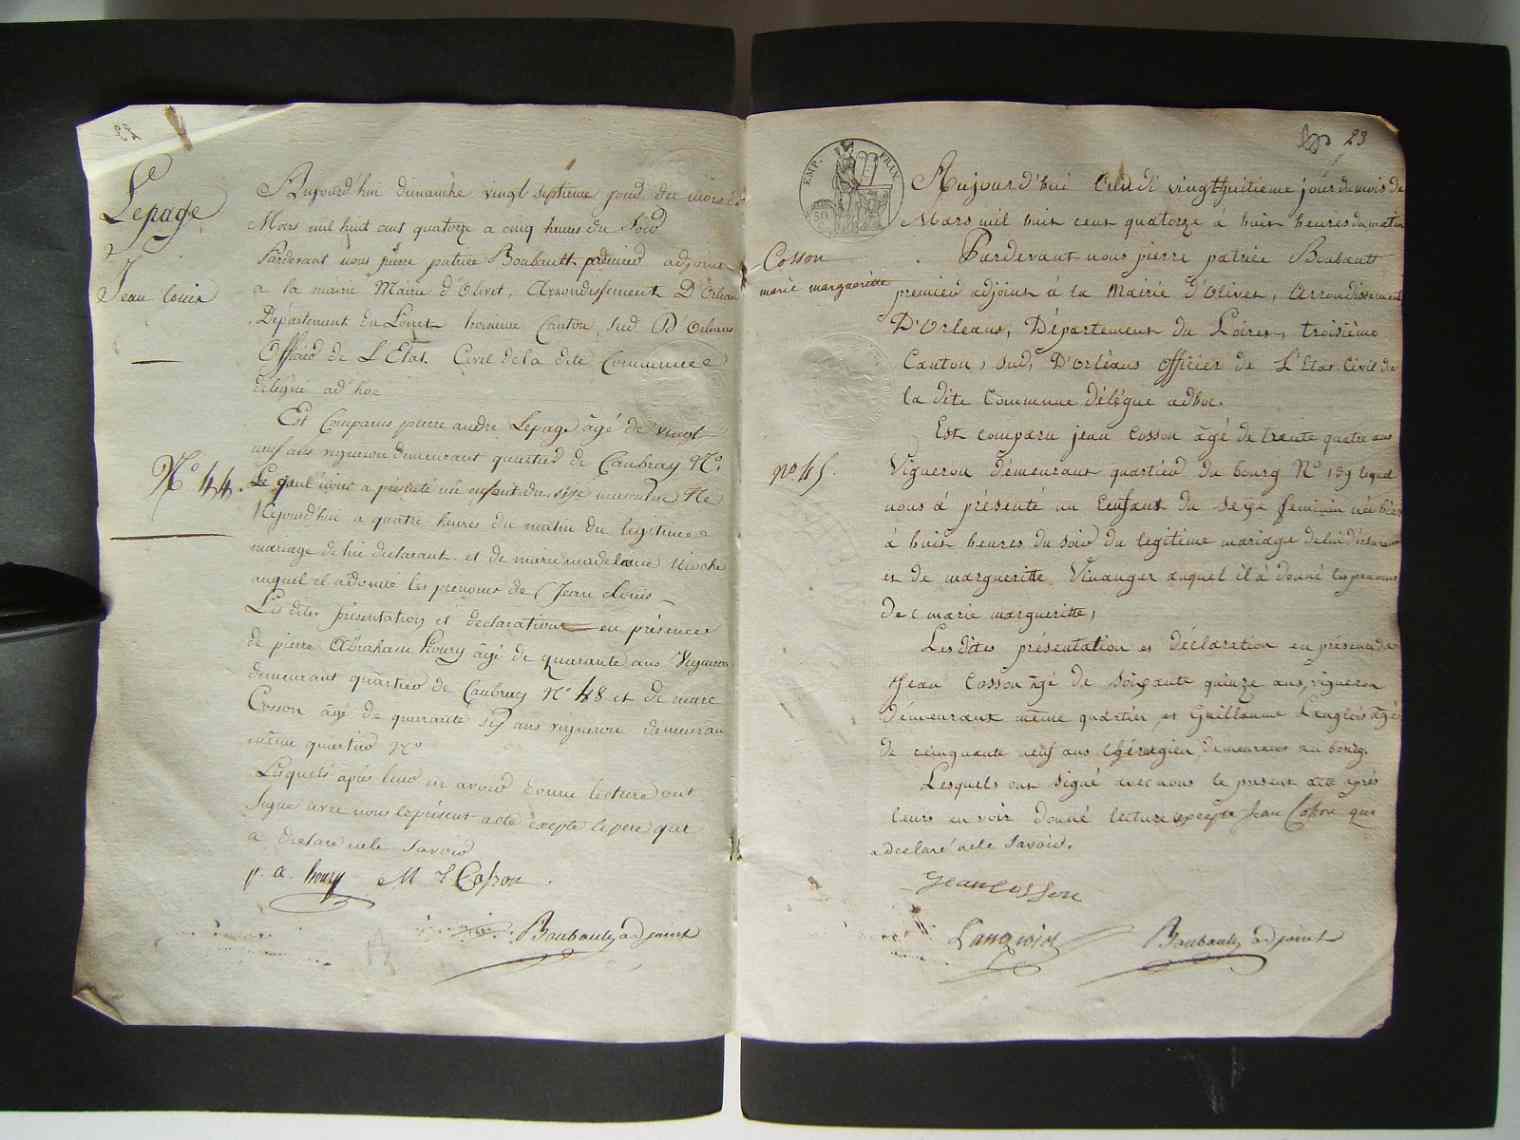 Lepage
Jean Louis
Nº 44.
Aujourd'hui dimanche vingt septieme jour du mois de
Mars mil huit cent quatorze a cinq heures du Soir
Pardevant nous pierre patrice Boubault premier adjoint
a la mairie Mairie d'Olivet, Arrondissement D'Orléans
Département du Loiret troisieme Canton, sud D'Orleans
Officier de L'Etat Civil de la dite Commune
délégué ad'hoc
Est Comparus pierre andre Lepage âgé de vingt
neuf ans vigneron demeurant quartier de Caubray Nº.
Le quel nous a présenté un enfant du sexe masculin né
aujourd'hui a quatre heures du matin du legitime
mariage de lui declarant et de marie madelaine
auquel il adonné les prenoms de Jean Louis
Les dites présentation et declaration en présence
de pierre Abraham houry âgé de quarante ans Vigneron
demeurant quartier de Caubray Nº 48 et de marc
Cosson âgé de quarante six ans vigneron demeurant
même quartier nº
Lesquels après leur en avoir donné lecture ont
Signé avec nous le présent acte excepté le pere qui
a declaré ne le Savoir
p. a. houry M L Cosson.
Boubault adjoint
23
EMP. FRAN.
Cosson
marie margueritte
nº 45.
Aujourd'hui Lundi vingthuitieme jour du mois de
Mars mil huit cent quatorze à huit heures du matin
Pardevant nous pierre patrice Boubault
premier adjoint à la Mairie d'Olivet, Arrondissement
D'Orleans, Département du Loiret, troisième
Canton, sud, D'Orléans officier de L'Etat Civil de
la dite Commune délégué adhoc.
Est comparu jean Cosson âgé de trente quatre ans
Vigneron démeurant quartier du bourg Nº 139 lequel
nous à présenté un Enfant du sexe feminin née hier
à huit heures du soir du legitime mariage de lui déclarant
et de margueritte Vinauger auquel il à donné les prenoms
de marie margueritte,
Les dites présentation et déclaration en présence de
Jean Cosson âgé de soixante quinze ans, vigneron
démeurant même quartier, et Guillaume Langlois âgé
de cinquante neuf ans demeurant au bourg.
Lesquels ont signé avec nous le present acte après
leurs en voir donné lecture excepté Jean Cosson qui
a declaré ne le Savoir.
Jean cosson
Boubault adjoint